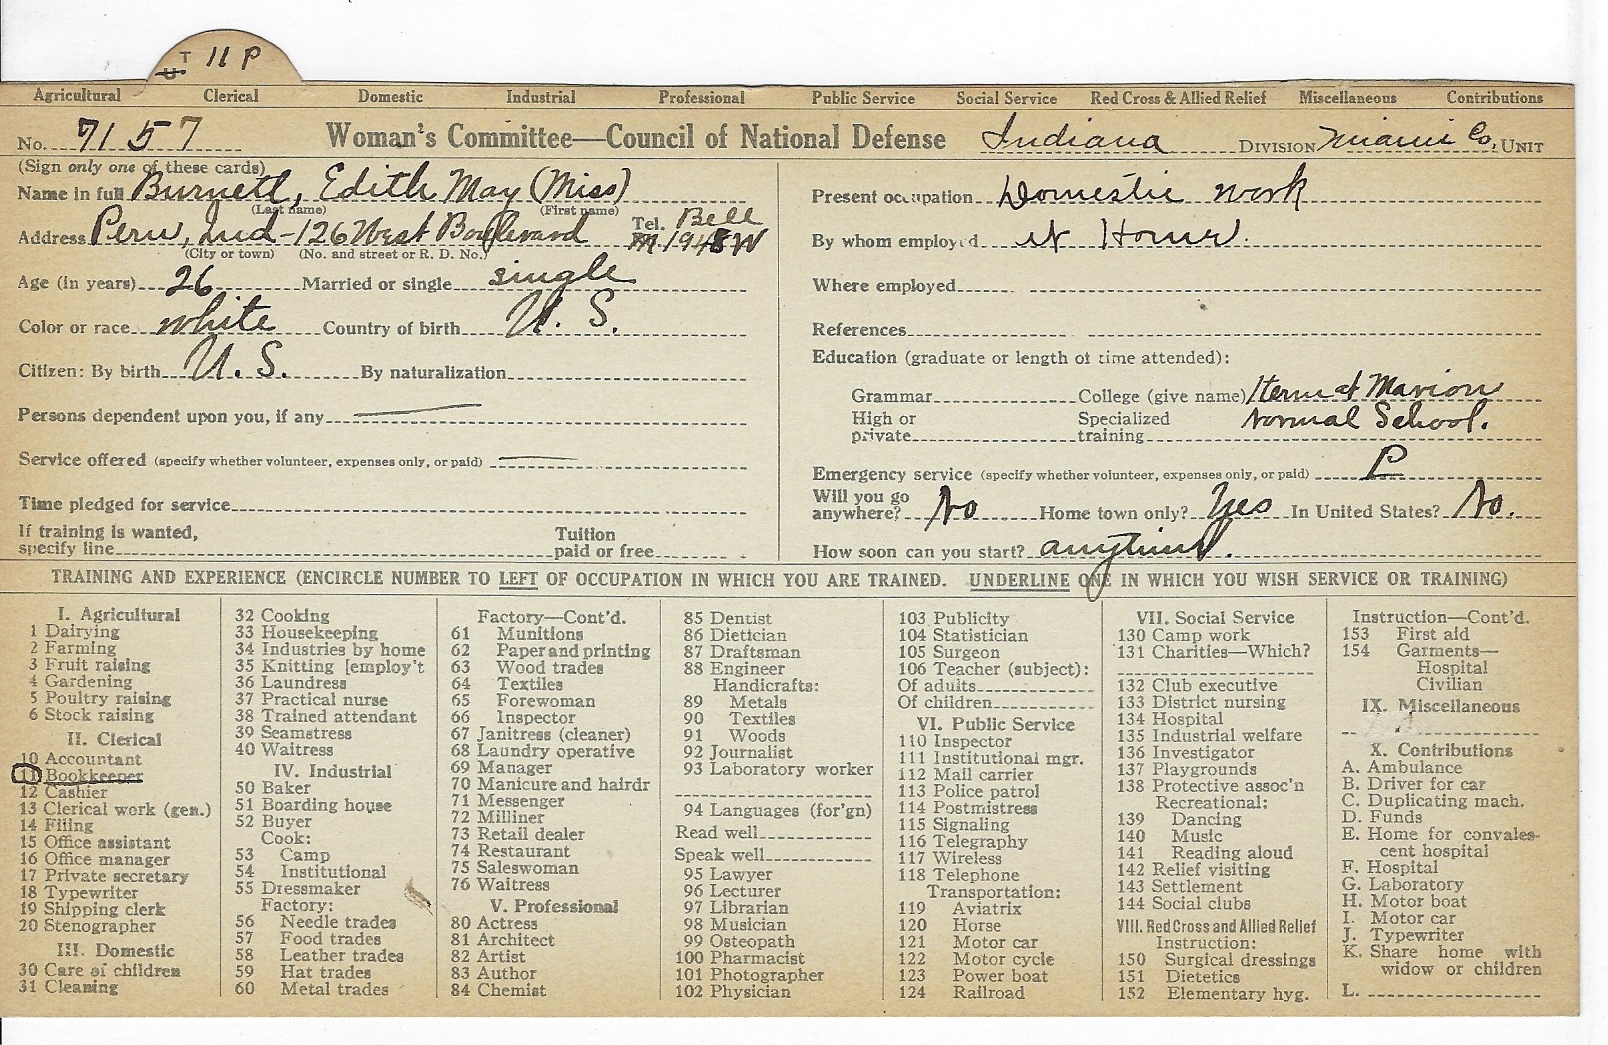 T 11 P
U
Agricultural Clerical Domestic Industrial Professional Public Service Social Service Red Cross & Allied Relief Miscellaneous Contributions
No. 7157 Woman's Committee—Council of National Defense Indiana DIVISION Miami Co. UNIT
(Sign only one of these cards)
Name in full Burnett, Edith May (Miss)
(Last name) (First name)
Address Peru, Ind - 126 West Boulevard Tel. Bell
(City or town) (No. and street or R. D. No.)
Age (in years) 26 Married or single single
Color or race white Country of birth U. S.
Citizen: By birth U. S. By naturalization
Persons dependent upon you, if any
Service offered (specify whether volunteer, expenses only, or paid)
Time pledged for service
If training is wanted,
specify line Tuition paid or free
Present occupation Domestic work
By whom employed at Home.
Where employed
References
Education (graduate or length of time attended):
Grammar College (give name) 1 term at Marion
High or private Specialized training Normal School.
Emergency service (specify whether volunteer, expenses only, or paid) P
Will you go anywhere? No Home town only? Yes In United States? No.
How soon can you start? anytime.
TRAINING AND EXPERIENCE (ENCIRCLE NUMBER TO LEFT OF OCCUPATION IN WHICH YOU ARE TRAINED. UNDERLINE ONE IN WHICH YOU WISH SERVICE OR TRAINING)
I. Agricultural
1 Dairying
2 Farming
3 Fruit raising
4 Gardening
5 Poultry raising
6 Stock raising
II. Clerical
10 Accountant
11 Bookkeeper
12 Cashier
13 Clerical work (gen.)
14 Filing
15 Office assistant
16 Office manager
17 Private secretary
18 Typewriter
19 Shipping clerk
20 Stenographer
III. Domestic
30 Care of children
31 Cleaning
32 Cooking
33 Housekeeping
34 Industries by home
35 Knitting [employ't
36 Laundress
37 Practical nurse
38 Trained attendant
39 Seamstress
40 Waitress
IV. Industrial
50 Baker
51 Boarding house
52 Buyer
Cook:
53 Camp
54 Institutional
55 Dressmaker
Factory:
56 Needle trades
57 Food trades
58 Leather trades
59 Hat trades
60 Metal trades
Factory—Cont'd.
61 Munitions
62 Paper and printing
63 Wood trades
64 Textiles
65 Forewoman
66 Inspector
67 Janitress (cleaner)
68 Laundry operative
69 Manager
70 Manicure and hairdr
71 Messenger
72 Milliner
73 Retail dealer
74 Restaurant
75 Saleswoman
76 Waitress
V. Professional
80 Actress
81 Architect
82 Artist
83 Author
84 Chemist
85 Dentist
86 Dietician
87 Draftsman
88 Engineer
Handicrafts:
89 Metals
90 Textiles
91 Woods
92 Journalist
93 Laboratory worker
94 Languages (for'gn)
Read well
Speak well
95 Lawyer
96 Lecturer
97 Librarian
98 Musician
99 Osteopath
100 Pharmacist
101 Photographer
102 Physician
103 Publicity
104 Statistician
105 Surgeon
106 Teacher (subject):
Of adults
Of children
VI. Public Service
110 Inspector
111 Institutional mgr.
112 Mail carrier
113 Police patrol
114 Postmistress
115 Signaling
116 Telegraphy
117 Wireless
118 Telephone
Transportation:
119 Aviatrix
120 Horse
121 Motor car
122 Motor cycle
123 Power boat
124 Railroad
VII. Social Service
130 Camp work
131 Charities—Which?
132 Club executive
133 District nursing
134 Hospital
135 Industrial welfare
136 Investigator
137 Playgrounds
138 Protective assoc'n
Recreational:
139 Dancing
140 Music
141 Reading aloud
142 Relief visiting
143 Settlement
144 Social clubs
VIII. Red Cross and Allied Relief
Instruction:
150 Surgical dressings
151 Dietetics
152 Elementary hyg.
Instruction—Cont'd.
153 First aid
154 Garments—
Hospital
Civilian
IX. Miscellaneous
X. Contributions
A. Ambulance
B. Driver for car
C. Duplicating mach.
D. Funds
E. Home for convales-
cent hospital
F. Hospital
G. Laboratory
H. Motor boat
I. Motor car
J. Typewriter
K. Share home with
widow or children
L.